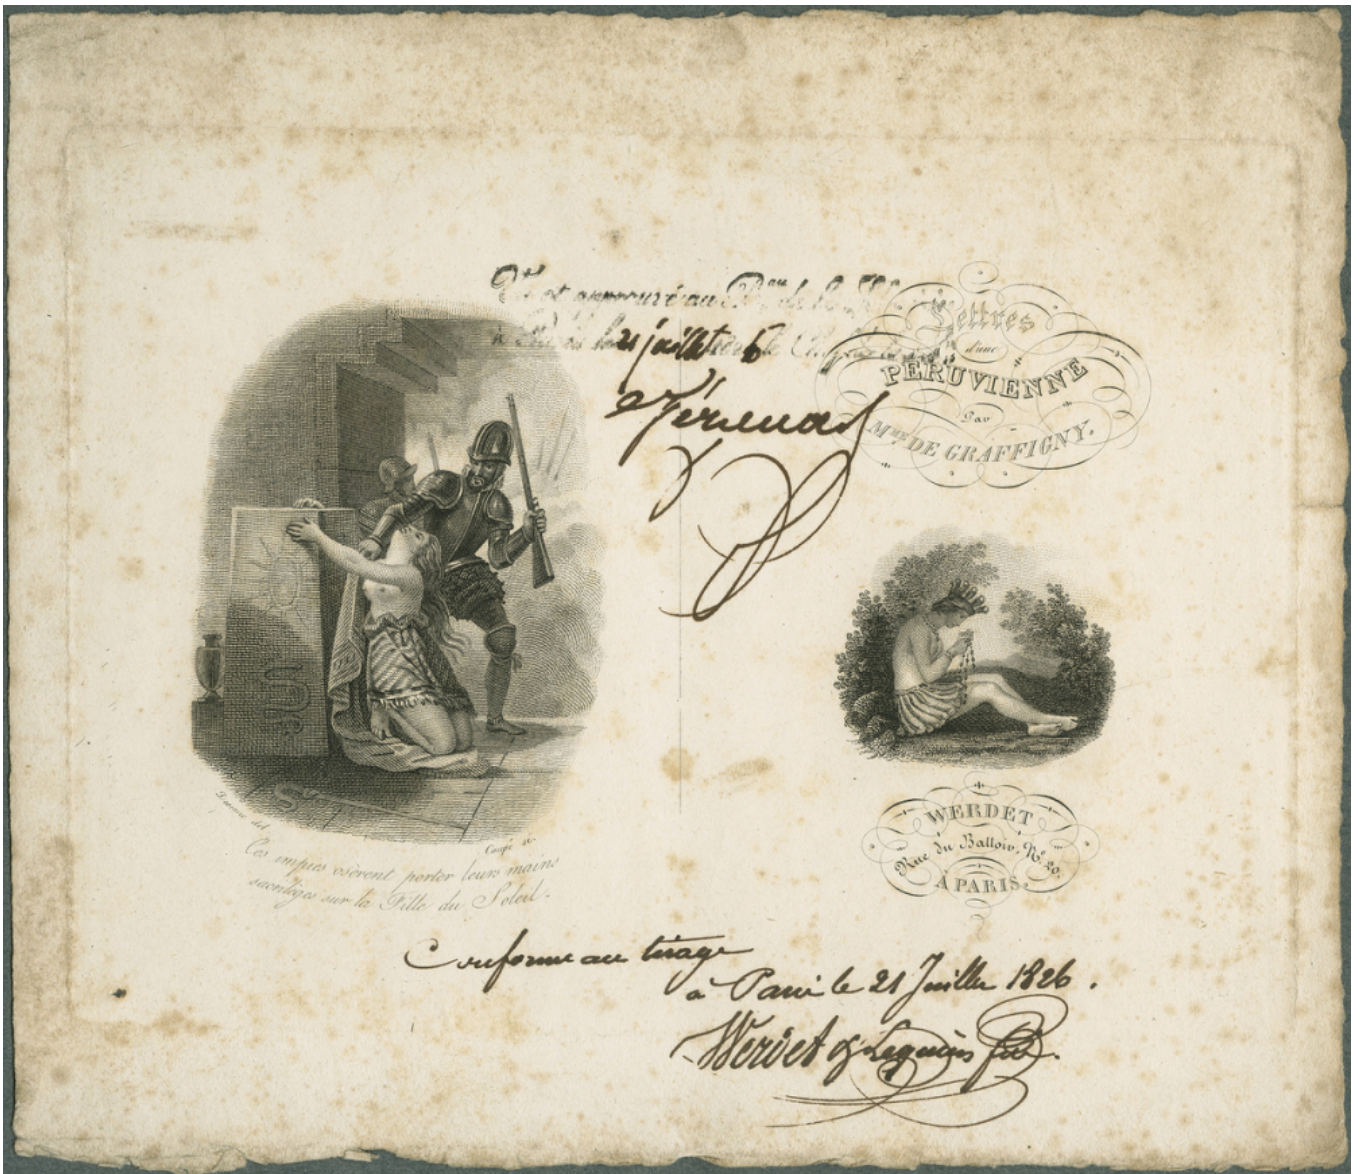 Vu et approuvé au
à 21 juillet 6
Lettres
d'une
PÉRUVIENNE
Par
MME DE GRAFFIGNY.
del
Coupé sc
Ces impies osèrent porter leurs mains
sacrilèges sur la Fille du Soleil.
WERDET
Rue du Battoir, No. 20.
À PARIS.
Conforme au tirage
à Paris le 21 Juillet 1826.
Werdet & Lequien fils.